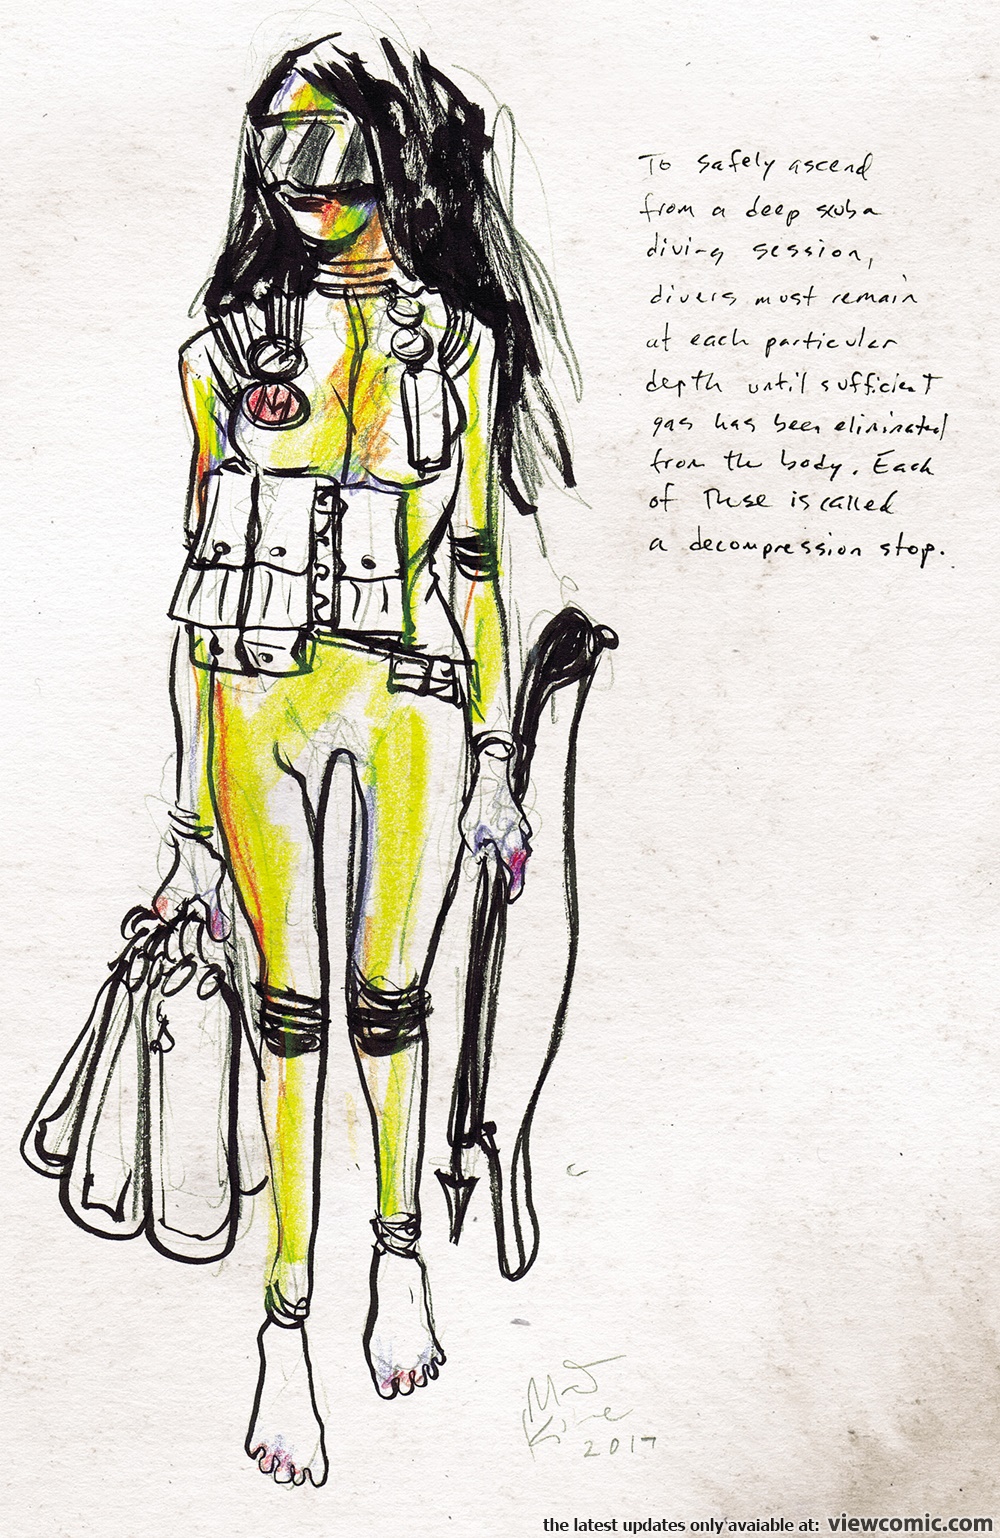 To safely ascend
from a deep scuba
diving session,
divers must remain
at each particular
depth until sufficient
gas has been eliminated
from the body. Each
of these is called
a decompression stop.
Matt
Kine
2017
the latest updates only avaiable at: viewcomic.com